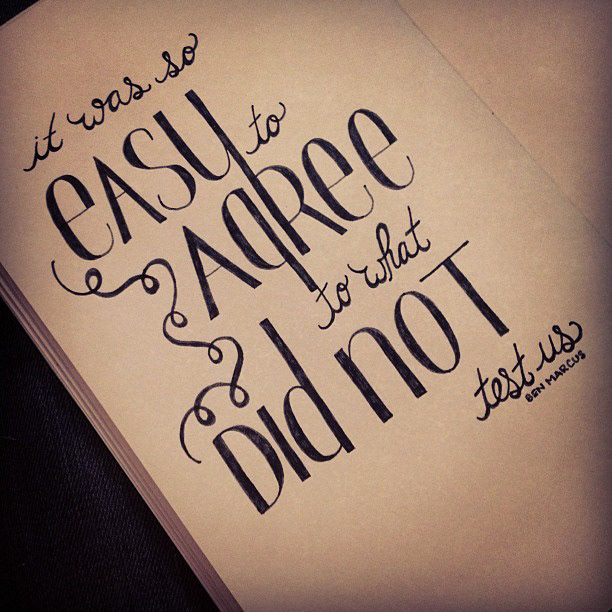 it was so
eASY to
AgRee
to what
DId nOT
test us
BEN MARCUS